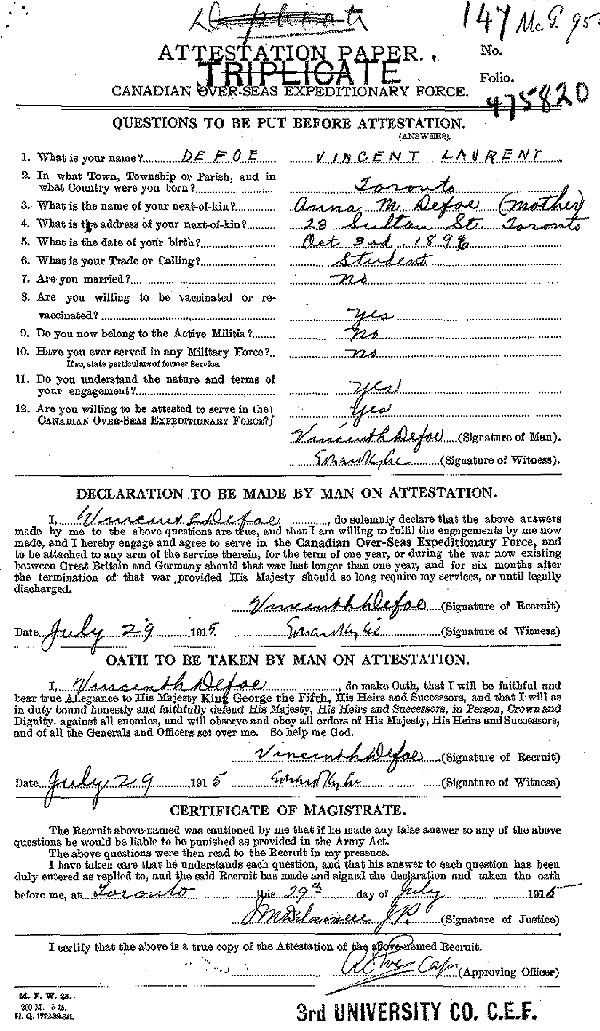 Duplicate
147 McG. 95
ATTESTATION PAPER.
No.
TRIPLICATE
Folio.
CANADIAN OVER-SEAS EXPEDITIONARY FORCE.
475820
QUESTIONS TO BE PUT BEFORE ATTESTATION.
(ANSWERS).
1. What is your name? DEFOE VINCENT LAURENT
2. In what Town, Township or Parish, and in
what Country were you born? Toronto
3. What is the name of your next-of-kin? Anna M. Defoe (mother)
4. What is the address of your next-of-kin? 23 Sultan St. Toronto
5. What is the date of your birth? Oct 3rd 1896
6. What is your Trade or Calling? Student
7. Are you married? No
8. Are you willing to be vaccinated or re-
vaccinated? Yes
9. Do you now belong to the Active Militia? No
10. Have you ever served in any Military Force? No
If so, state particulars of former Service.
11. Do you understand the nature and terms of
your engagement? Yes
12. Are you willing to be attested to serve in the Yes
CANADIAN OVER-SEAS EXPEDITIONARY FORCE?
Vincent L Defoe (Signature of Man).
(Signature of Witness).
DECLARATION TO BE MADE BY MAN ON ATTESTATION.
I, Vincent L Defoe, do solemnly declare that the above answers
made by me to the above questions are true, and that I am willing to fulfil the engagements by me now
made, and I hereby engage and agree to serve in the Canadian Over-Seas Expeditionary Force, and
to be attached to any arm of the service therein, for the term of one year, or during the war now existing
between Great Britain and Germany should that war last longer than one year, and for six months after
the termination of that war provided His Majesty should so long require my services, or until legally
discharged.
Vincent L Defoe (Signature of Recruit)
Date July 29 1915 (Signature of Witness)
OATH TO BE TAKEN BY MAN ON ATTESTATION.
I, Vincent L Defoe, do make Oath, that I will be faithful and
bear true Allegiance to His Majesty King George the Fifth, His Heirs and Successors, and that I will as
in duty bound honestly and faithfully defend His Majesty, His Heirs and Successors, in Person, Crown and
Dignity, against all enemies, and will observe and obey all orders of His Majesty, His Heirs and Successors,
and of all the Generals and Officers set over me. So help me God.
Vincent L Defoe (Signature of Recruit)
Date July 29 1915 (Signature of Witness)
CERTIFICATE OF MAGISTRATE.
The Recruit above-named was cautioned by me that if he made any false answer to any of the above
questions he would be liable to be punished as provided in the Army Act.
The above questions were then read to the Recruit in my presence.
I have taken care that he understands each question, and that his answer to each question has been
duly entered as replied to, and the said Recruit has made and signed the declaration and taken the oath
before me, at Toronto this 29th day of July 1915
J.P. (Signature of Justice)
I certify that the above is a true copy of the Attestation of the above-named Recruit.
Capt (Approving Officer)
M. F. W. 23.
200 M. 5-15.
3rd UNIVERSITY CO. C.E.F.